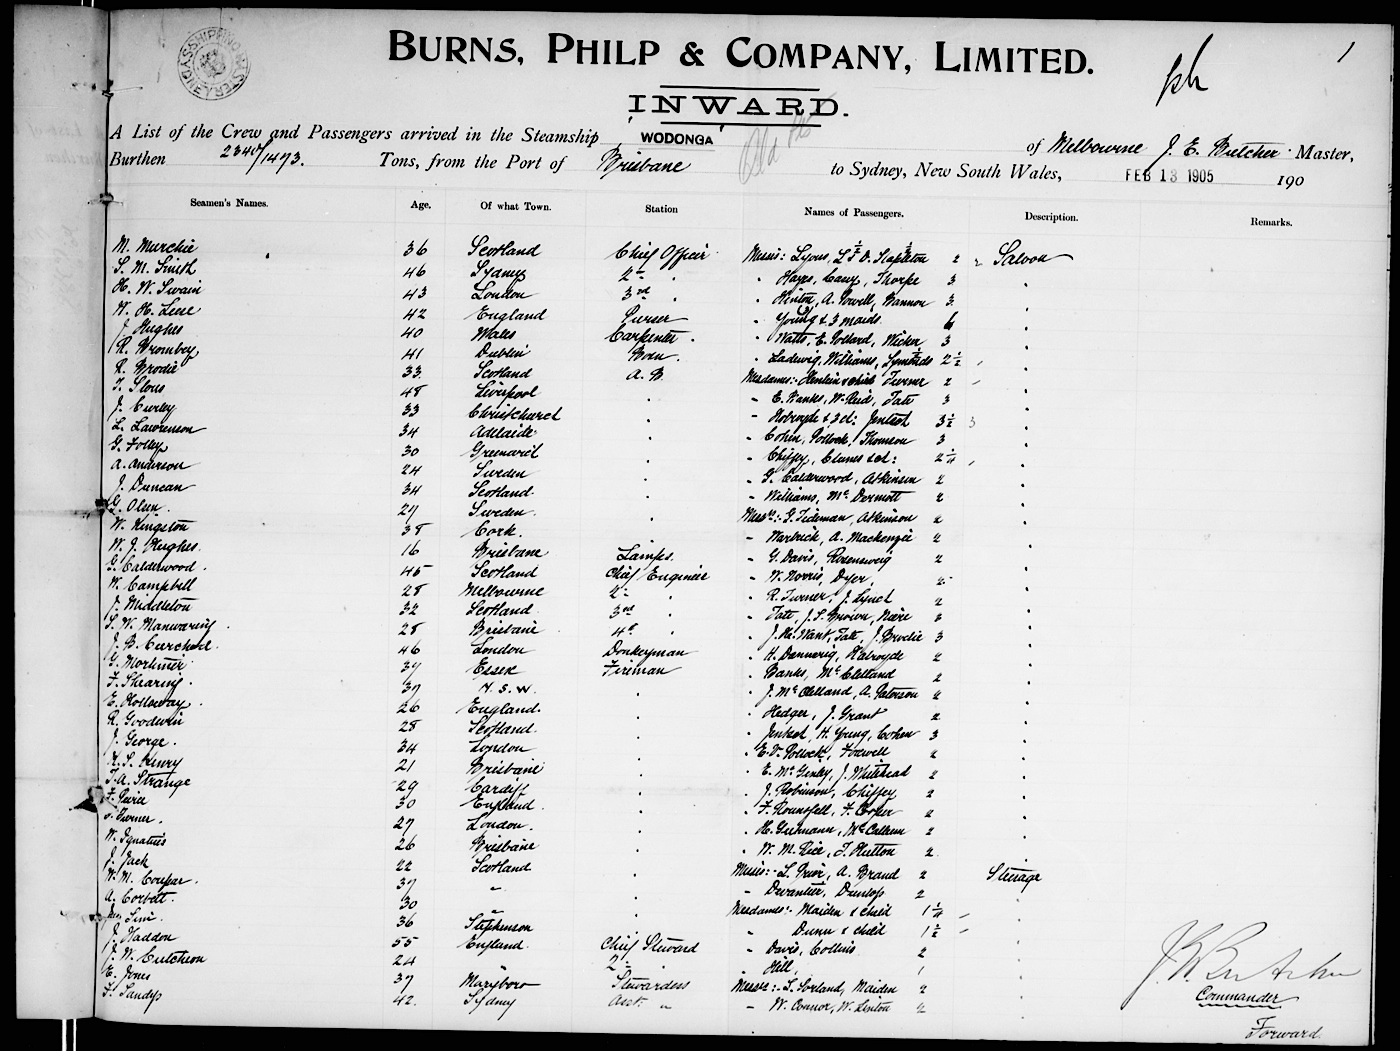 BURNS, PHILP & COMPANY, LIMITED.
1
INWARD.
A List of the Crew and Passengers arrived in the Steamship WODONGA of Melbourne J. E. Butcher Master,
Burthen 2340/1473. Tons, from the Port of Brisbane to Sydney, New South Wales, FEB 13 1905 190
Seamen's Names. Age. Of what Town. Station Names of Passengers. Description. Remarks.
M. Murchie 36 Scotland Chief Officer Misses: Lyons, Stapleton 2 Saloon
S. M. Smith 46 Sydney 2nd " Hayes, Thorpe 3
H. W. Swain 43 London 3rd " Hinton, A. Powell, Bannon 3
W. H. Lee 42 England Purser " Young & 3 maids 6
J. Hughes 40 Wales Carpenter " Watts, E. Pollard, Wicker 3
R. Bromley 41 Dublin Bosn. " Ladewig, Williams, 2½
R. Brodie 33 Scotland A. B. Mesdames: & child Turner 2
T. 48 Liverpool " E. Banks, W. Reid, Tate 3
J. Curley 33 Christchurch " Holroyde & 3 cl: 3½
L. Lawrenson 34 Adelaide " Cohen, Pollock, Thomson 3
G. Folley 30 Greenwich " Chiffey, & cl: 2¼
A. Anderson 24 Sweden " G. Calderwood, Atkinson 2
J. Duncan 34 Scotland " Williams, McDermott 2
G. Olsen 27 Sweden Messrs: G. Tideman, Atkinson 2
W. Kingston 38 Cork " Warbrick, A. Mackenzie 2
W. J. Hughes 16 Brisbane Lamps. " G. Davis, Rosensweig 2
G. Calderwood 45 Scotland Chief Engineer " W. Norris, Dyer, 2
W. Campbell 28 Melbourne 2nd " R. Turner, J. Lynch 2
J. Middleton 32 Scotland 3rd " Tate, J. S. Brown, 3
S. W. Manwaring 28 Brisbane 4th " J. H. Want, Tate, J. Brodie 3
J. B. 46 London Donkeyman " H. Holroyde 2
G. Mortimer 37 Essex Fireman " Banks, McClelland 2
F. Shearing 37 N. S. W. " J. McClelland, A. Paterson 2
E. Holloway 26 England " Hedger, J. Grant 2
R. Goodwin 28 Scotland " H. Young, Cohen 3
J. George 34 London " E. V. Pollock, Foxwell 2
H. S. Henry 21 Brisbane " E. McGinley, J. Whitehead 2
T. A. Strange 29 Cardiff " J. Robinson, Chiffey 2
30 England " F. Rounsfell, F. Cooper 2
Turner 27 London " McCallum 2
W. Ignatius 26 Brisbane " W. M. Rice, T. Hutton 2
J. Jack 22 Scotland Misses: L. A. Brand 2 Steerage
W. M. Coupar 37 " " Dunlop 2
A. Corbett 30 Mesdames: Maiden & child 1¼
Sim 36 " " Dunn & child 1½
J. Haddon 55 England Chief Steward " Davis, Collins 2
J. W. Cutcheon 24 " 2nd " Hill, 1
E. Jones 37 Maryboro Stewardess Messrs: Maiden 2
S. Sandys 42 Sydney Asst. " " W. Connor, W. Linton 2
Commander
Forward